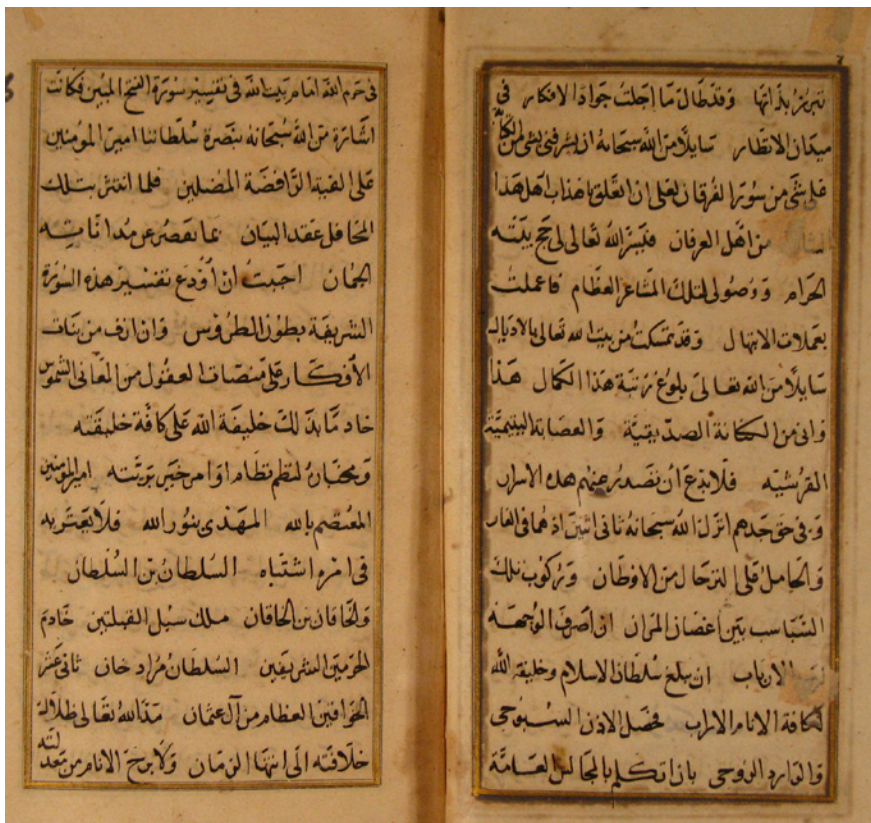 تتبرز بذاتها وقد طال ما اجلت جواد الافكار في
ميدان الانظار سايلا من الله سبحانه ان يشرفني بشي
على شي من سور الفرقان لعلى ان اتعلق باهذاب اهل هذا
من اهل العرفان فيسر الله تعالى لي حج بيته
الحرام ووصولى لتلك المشاعر العظام فاعملت
يعملات الابتهال وقد تمسكت من بيت الله تعالى بالاذيال
سايلا من الله تعالى بلوغ رتبة هذا الكمال هذا
وانى من الصديقية والعصابة التيمية
القرشية فلا بدع ان تصدر عنهم هذه الاسرار
وفي حق جدهم انزل الله سبحانه ثاني اثنين اذ هما في الغار
والحامل على الترحال من الاوطان وركوب تلك
السباسب بين اغصان المران ان اصرف الوجهة
الارباب ان يبلغ سلطان الاسلام وخليفة الله
لكافة الانام الاراب فحصل الاذن السبوحي
والوارد الروحي بان اتكلم بالمجالس العامة
في حرم الله امام بيت الله في تفسير سورة الفتح المبين فكانت
اشارة من الله سبحانه بنصرة سلطاننا امير المومنين
على الفية الرافضة المضلين فلما انتثر بتلك
المحافل عقد البيان بما يقصر عن مداناته
الجمان احببت ان اودع تفسير هذه السورة
الشريفة بطون الطروس وان ازف من بنات
الافكار على منصات العقول من المعاني الشموس
خادما بذلك خليفة الله على كافة خليقته
لنظم نظام اوامر خير بريته امير المومنين
المعتصم بالله المهتدى بنور الله فلا يعتريه
في امره اشتباه السلطان بن السلطان
والخاقان بن الخاقان ملك سبل القبلتين خادم
الحرمين الشريفين السلطان مراد خان ثاني عشر
الخواقين العظام من آل عثمان مد الله تعالى ظلال
خلافته الى انتها الزمان ولا برح الانام من معدلته